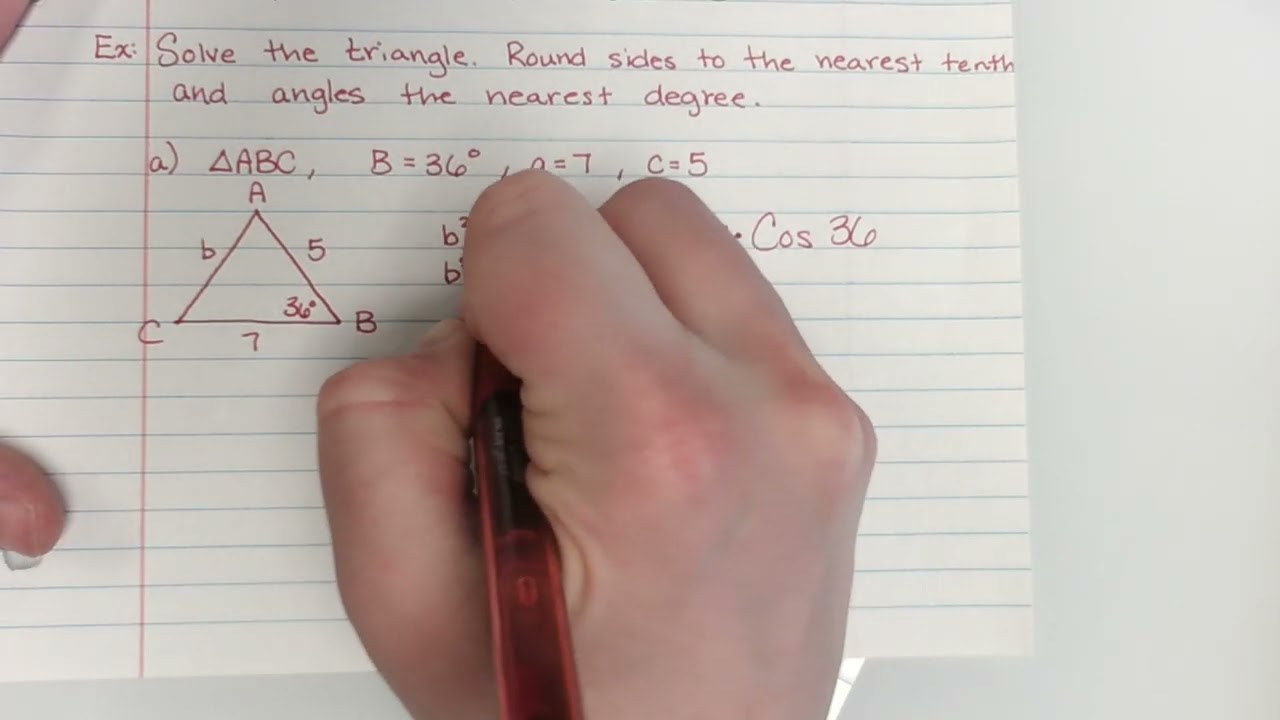 Ex: Solve the triangle. Round sides to the nearest tenth
and angles the nearest degree.
a) △ABC, B = 36°, a = 7, c = 5
A
b 5
36°
C B
7
b² · Cos 36
b²